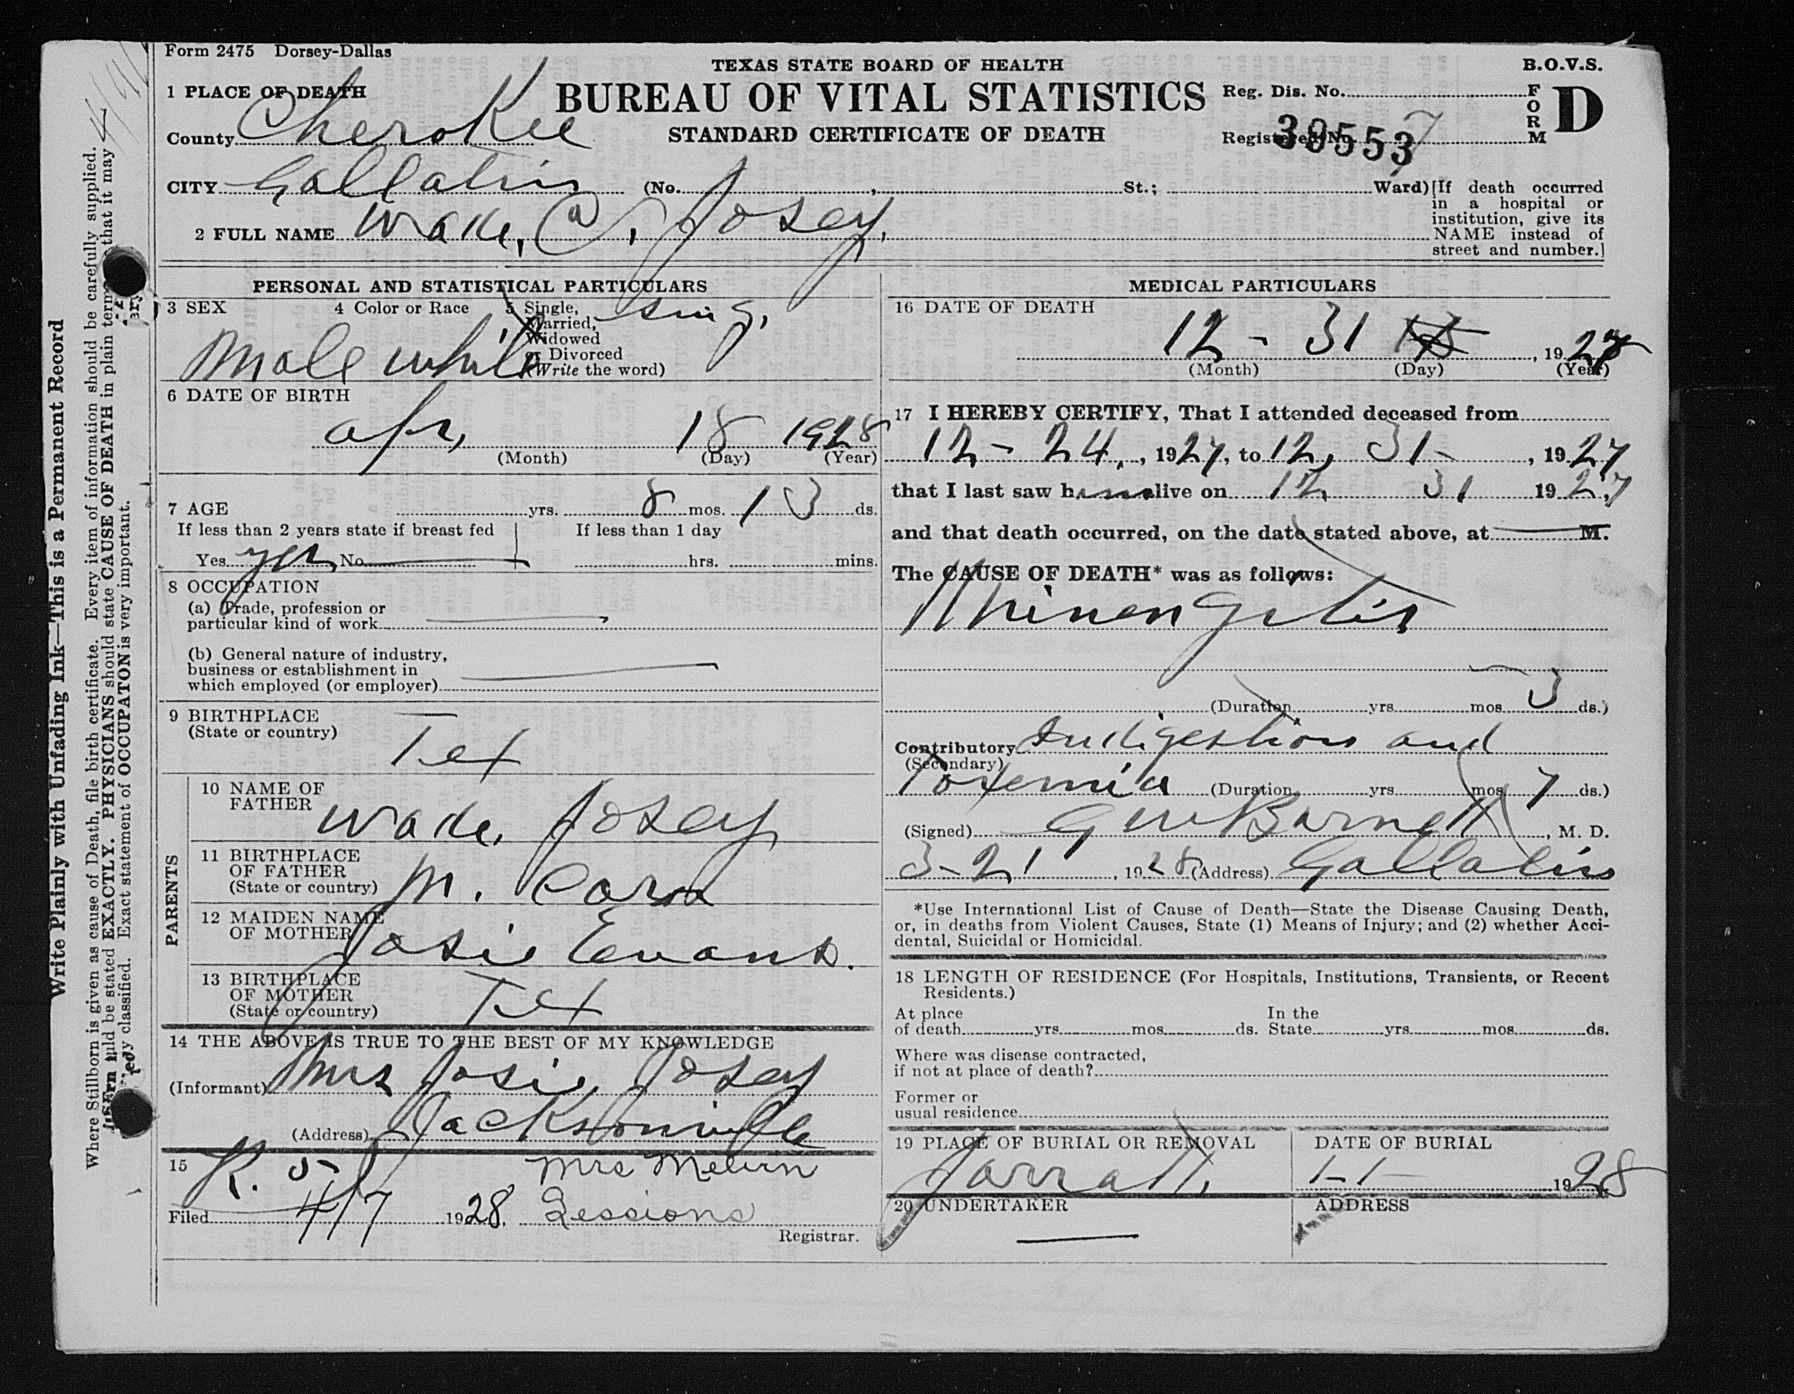 Form 2475 Dorsey-Dallas
TEXAS STATE BOARD OF HEALTH
B.O.V.S.
BUREAU OF VITAL STATISTICS
STANDARD CERTIFICATE OF DEATH
Reg. Dis. No.
Registered No. 7
39553
FORM D
1 PLACE OF DEATH
County Cherokee
CITY Gallatin (No. , St.; Ward)
2 FULL NAME Wade, C, Josey,
[If death occurred
in a hospital or
institution, give its
NAME instead of
street and number.]
PERSONAL AND STATISTICAL PARTICULARS
3 SEX
Male
4 Color or Race
white
5 Single,
Married,
Widowed
or Divorced
(Write the word)
sing,
6 DATE OF BIRTH
apr, 18 1928
(Month) (Day) (Year)
7 AGE yrs. 8 mos. 13 ds.
If less than 2 years state if breast fed
Yes yes No
If less than 1 day
hrs. mins.
8 OCCUPATION
(a) Trade, profession or
particular kind of work
(b) General nature of industry,
business or establishment in
which employed (or employer)
9 BIRTHPLACE
(State or country)
Tex
PARENTS
10 NAME OF
FATHER
Wade, Josey
11 BIRTHPLACE
OF FATHER
(State or country)
N. Cora
12 MAIDEN NAME
OF MOTHER
Josie Evans.
13 BIRTHPLACE
OF MOTHER
(State or country)
Tex
14 THE ABOVE IS TRUE TO THE BEST OF MY KNOWLEDGE
(Informant) Mrs Josie Josey
(Address) Jacksonville
R. 5
15
Filed 4/7 1928. Mrs Melvin
Sessions
Registrar.
MEDICAL PARTICULARS
16 DATE OF DEATH
12 - 31 , 1927
(Month) (Day) (Year)
17 I HEREBY CERTIFY, That I attended deceased from
12 - 24, , 1927, to 12, 31- , 1927
that I last saw him alive on 12 31 1927
and that death occurred, on the date stated above, at M.
The CAUSE OF DEATH* was as follows:
Minengitis
(Duration yrs mos 3 ds.)
Contributory Indigestion and
(Secondary)
Toxemia (Duration yrs mos 7 ds.)
(Signed) G W Barnett , M. D.
3-21 , 1928 (Address) Gallatin
*Use International List of Cause of Death—State the Disease Causing Death,
or, in deaths from Violent Causes, State (1) Means of Injury; and (2) whether Acci-
dental, Suicidal or Homicidal.
18 LENGTH OF RESIDENCE (For Hospitals, Institutions, Transients, or Recent
Residents.)
At place
of death yrs. mos. ds.
In the
State yrs. mos. ds.
Where was disease contracted,
if not at place of death?
Former or
usual residence
19 PLACE OF BURIAL OR REMOVAL
Jarratt,
DATE OF BURIAL
1-1- 1928
20 UNDERTAKER
ADDRESS
Write Plainly with Unfading Ink—This is a Permanent Record
Where Stillborn is given as cause of Death, file birth certificate. Every item of information should be carefully supplied.
should be stated EXACTLY. PHYSICIANS should state CAUSE OF DEATH in plain terms that it may
classified. Exact statement of OCCUPATON is very important.